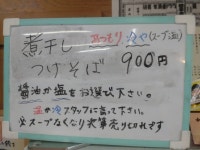 煮干し あっそり 冷や(スープ温)
つけそば 900円
醤油か塩をお選び下さい。
温か冷スタッフに言って下さい。
※スープなくなり次第売り切れです